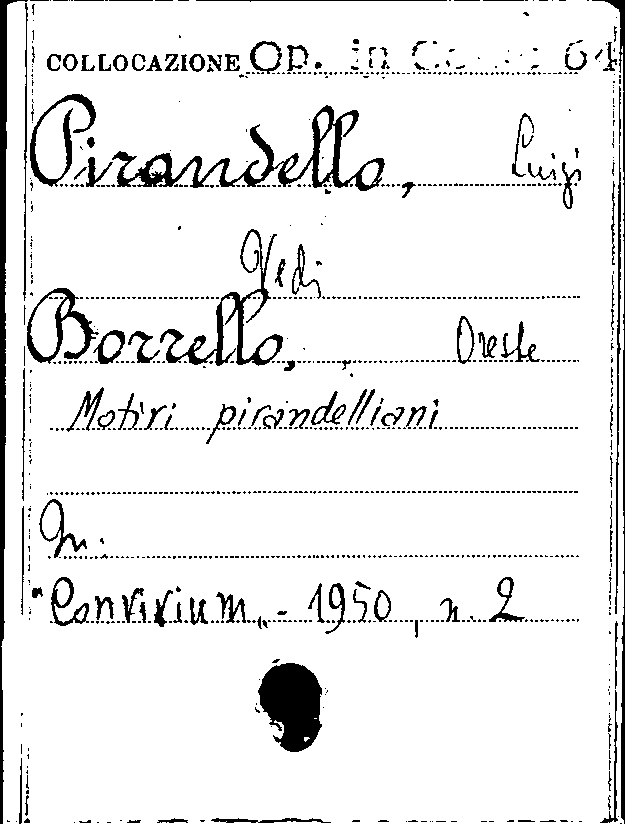 COLLOCAZIONE Op. in 64
Pirandello, Luigi
Vedi
Borrello, Oreste
Motivi pirandelliani
In:
"Convivium„ - 1950, n. 2